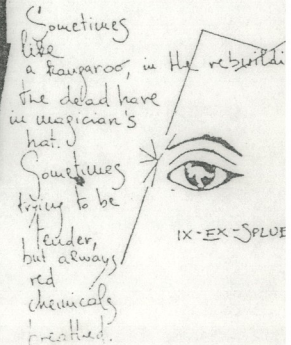 Sometimes
like
a kangaroo, in the rebuildi
the dead have
in magician's
hat.
Sometimes
trying to be
tender,
but always
red
chemicals
breathed.
IX-EX-SPLUE